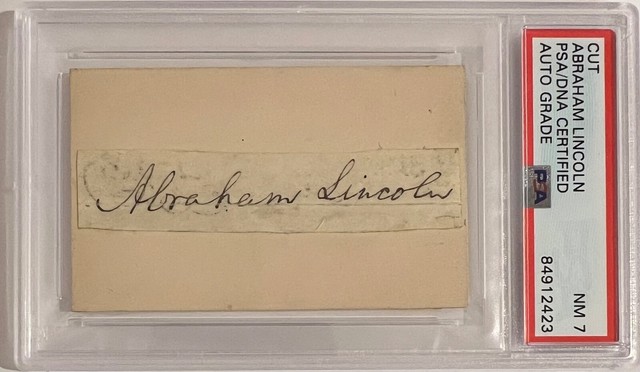 Abraham Lincoln
CUT
ABRAHAM LINCOLN
PSA/DNA CERTIFIED
AUTO GRADE
PSA
NM 7
84912423